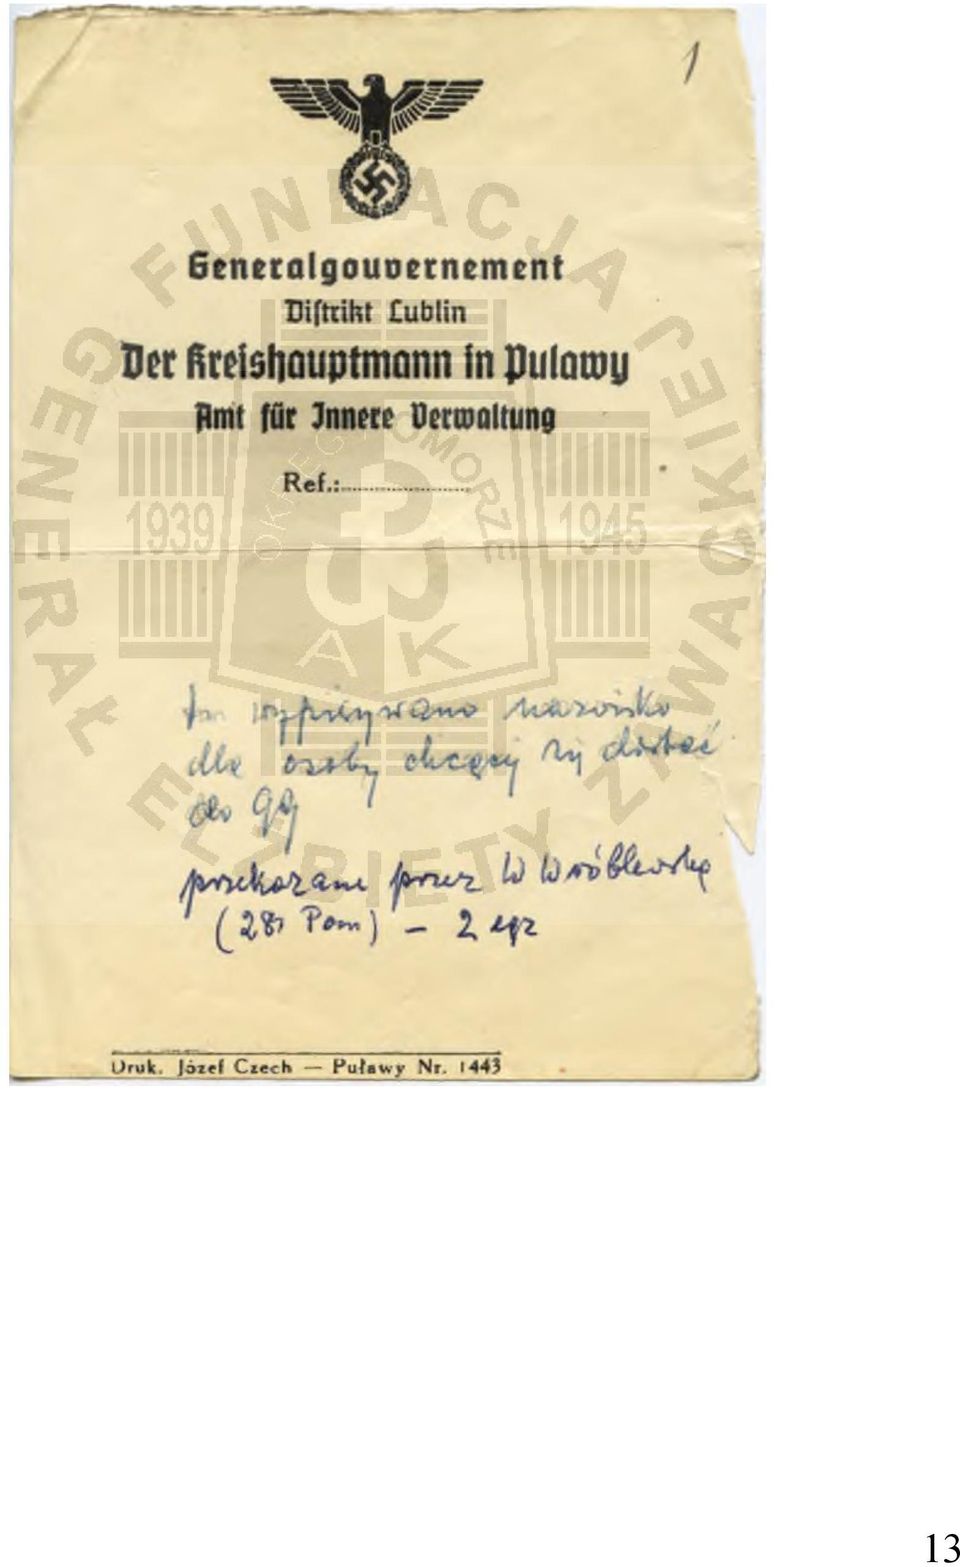 1
Generalgouvernement
Diſtrikt Lublin
Der Kreishauptmann in Pulawy
Amt für Innere Verwaltung
Ref.:
FUNDACJA GENERAŁ ELŻBIETY ZAWACKIEJ
OKRĘG POMORZE
1939 1945
AK
wypisywano nazwisko
dla osoby chcącej się dostać
do GG
przekazane przez W Wróblewską
(28 Pom) – 2 egz
Druk. Józef Czech — Puławy Nr. 1443
13